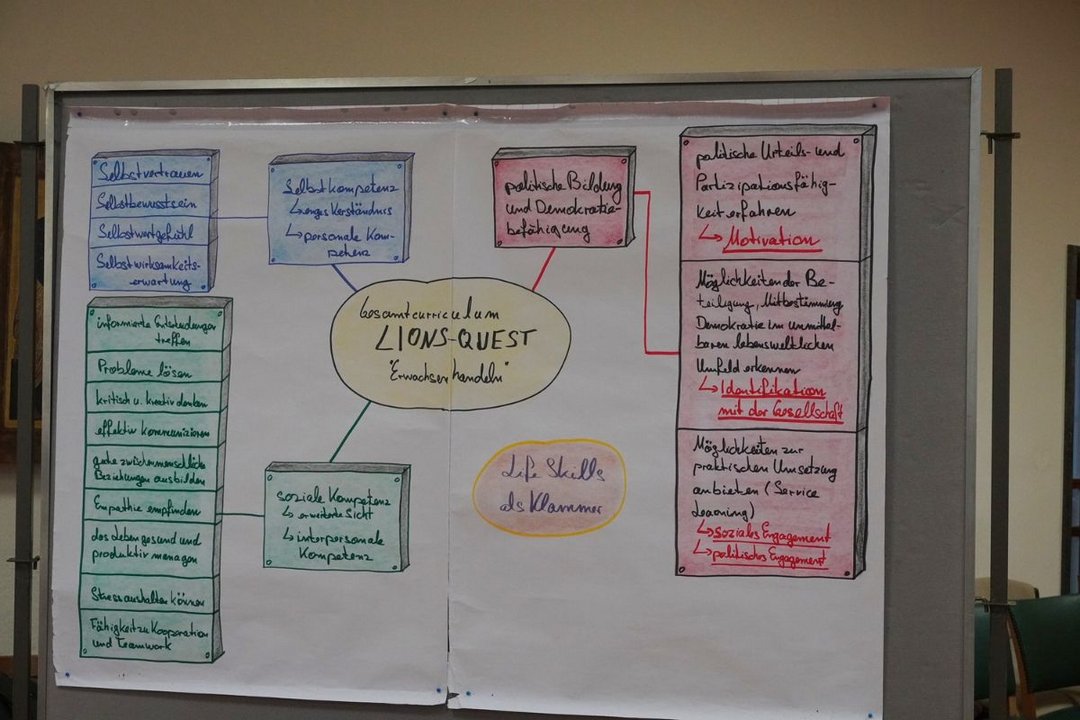 Selbstvertrauen
Selbstbewusstsein
Selbstwertgefühl
Selbstwirksamkeits-
erwartung
Selbstkompetenz
↳ enges Verständnis
↳ personale Kom-
petenz
politische Bildung
und Demokratie-
befähigung
politische Urteils- und
Partizipationsfähig-
keit erfahren
↳ Motivation
Möglichkeiten der Be-
teiligung, Mitbestimmung
Demokratie im unmittel-
baren lebensweltlichen
Umfeld erkennen
↳ Identifikation
mit der Gesellschaft
Möglichkeiten zur
praktischen Umsetzung
anbieten (Service
Learning)
↳ soziales Engagement
↳ politisches Engagement
Gesamtcurriculum
LIONS-QUEST
"Erwachsen handeln"
informierte Entscheidungen
treffen
Probleme lösen
kritisch u. kreativ denken
effektiv kommunizieren
gute zwischenmenschliche
Beziehungen ausbilden
Empathie empfinden
das Leben gesund und
produktiv managen
Stress aushalten können
Fähigkeit zu Kooperation
und Teamwork
soziale Kompetenz
↳ erweiterte Sicht
↳ interpersonale
Kompetenz
Life Skills
als Klammer